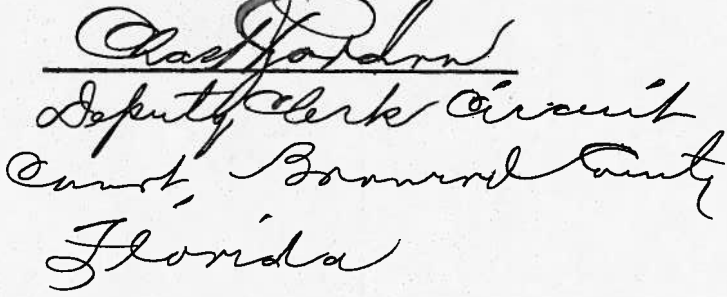 Chas
Deputy Clerk Circuit
Court, Broward County
Florida